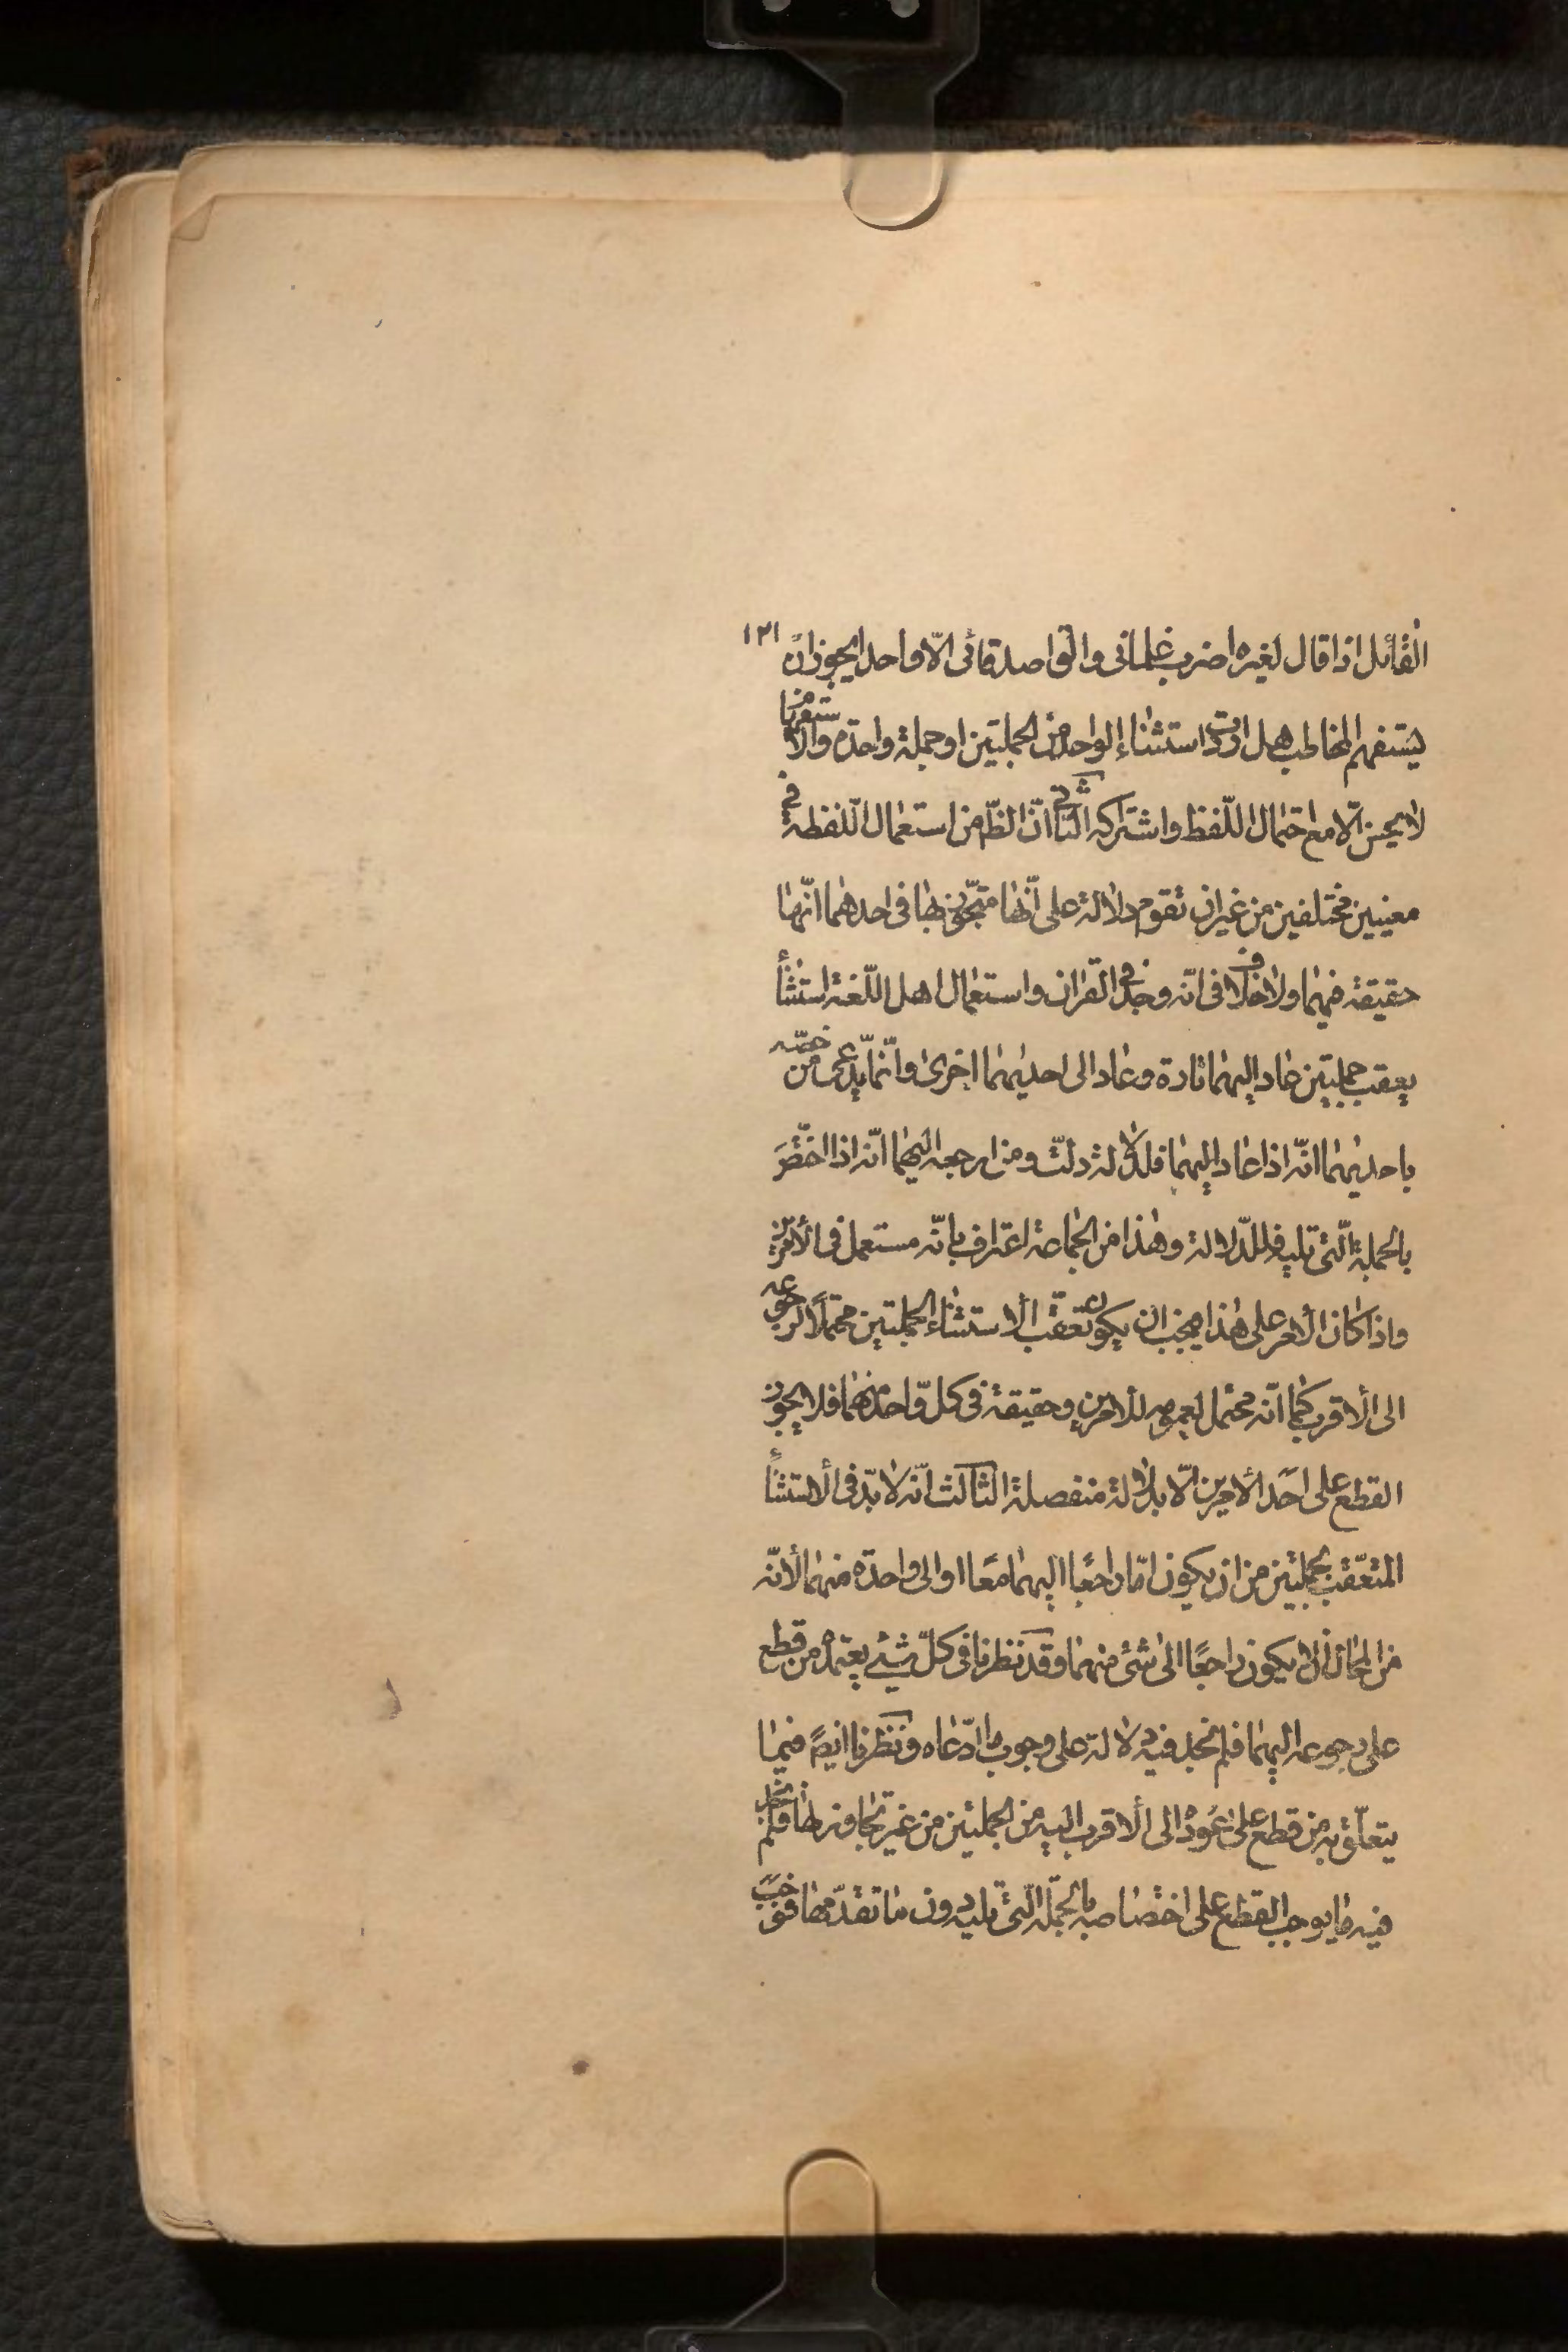 ١٢١
القائل اذا قال لغيره اضرب غلمانى والق اصدقائى الّا واحدا يجوز ان
يستفهم المخاطب هل اردت استثناء الواحد من الجملتين او جملة واحدة والاستفهام
لا يحسن الّا مع احتمال اللّفظ واشتراكه الثانى انّ الظّ من استعمال اللّفظه فى
معنيين مختلفين من غير ان تقوم دلالة على انّها متجّوز بها فى احدهما انّها
حقيقة فيهما ولا خلاف فى انّه وجد فى القران واستعمال اهل اللّغة استثناء
يعقب جملتين عاد اليهما تارة وعاد الى احديهما اخرى وانّما يدّعى من خصّه
باحديهما انّه اذا عاد اليهما فلدلالة دلّت ومن ارجعه اليهما انّه اذا اختّصَ
بالجملة الّتى تليه فللدّلالة وهذا من الجماعة اعتراف بانّه مستعمل فى الأمرين
واذا كان الأمر على هذا فيجب ان يكون تعقّب الأستثناء الجملتين محتملًا لرجوعه
الى الأقرب كما انّه محتمل لعمومه للأمرين وحقيقة فى كلّ واحد منهما فلا يجوز
القطع على احَد الأمرين الّا بدلالة منفصلة الثالث انّه لا بدّ فى الأستثناء
المتعّقب بجملتين من ان يكون امّا راجعًا اليهما معًا او الى واحدة منهما لأنّه
من المحال ان لا يكون راجعًا الى شئ منهما وقد نظرنا فى كلّ شيئ يعتمد من قطع
على رجوعه اليهما فلم نجد فيه دلالة على وجوب ما ادّعاه ونظرنا ايضً فيما
يتعلّق به من قطع على عَوده الى الأقرب اليه من الجملتين من غير تجاوز لها فلم نجد
فيه ما يوجب القطع على اختصاصه بالجملة الّتى تليه دون ما تقدّمها فوجب